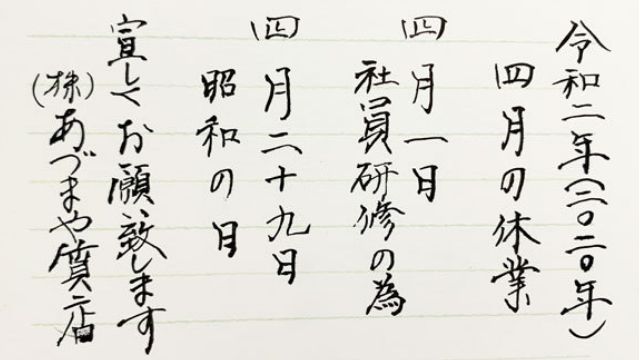 令和二年(二〇二〇年)
四月の休業
四月一日
社員研修の為
四月二十九日
昭和の日
宜しくお願い致します
(株)あづまや質店